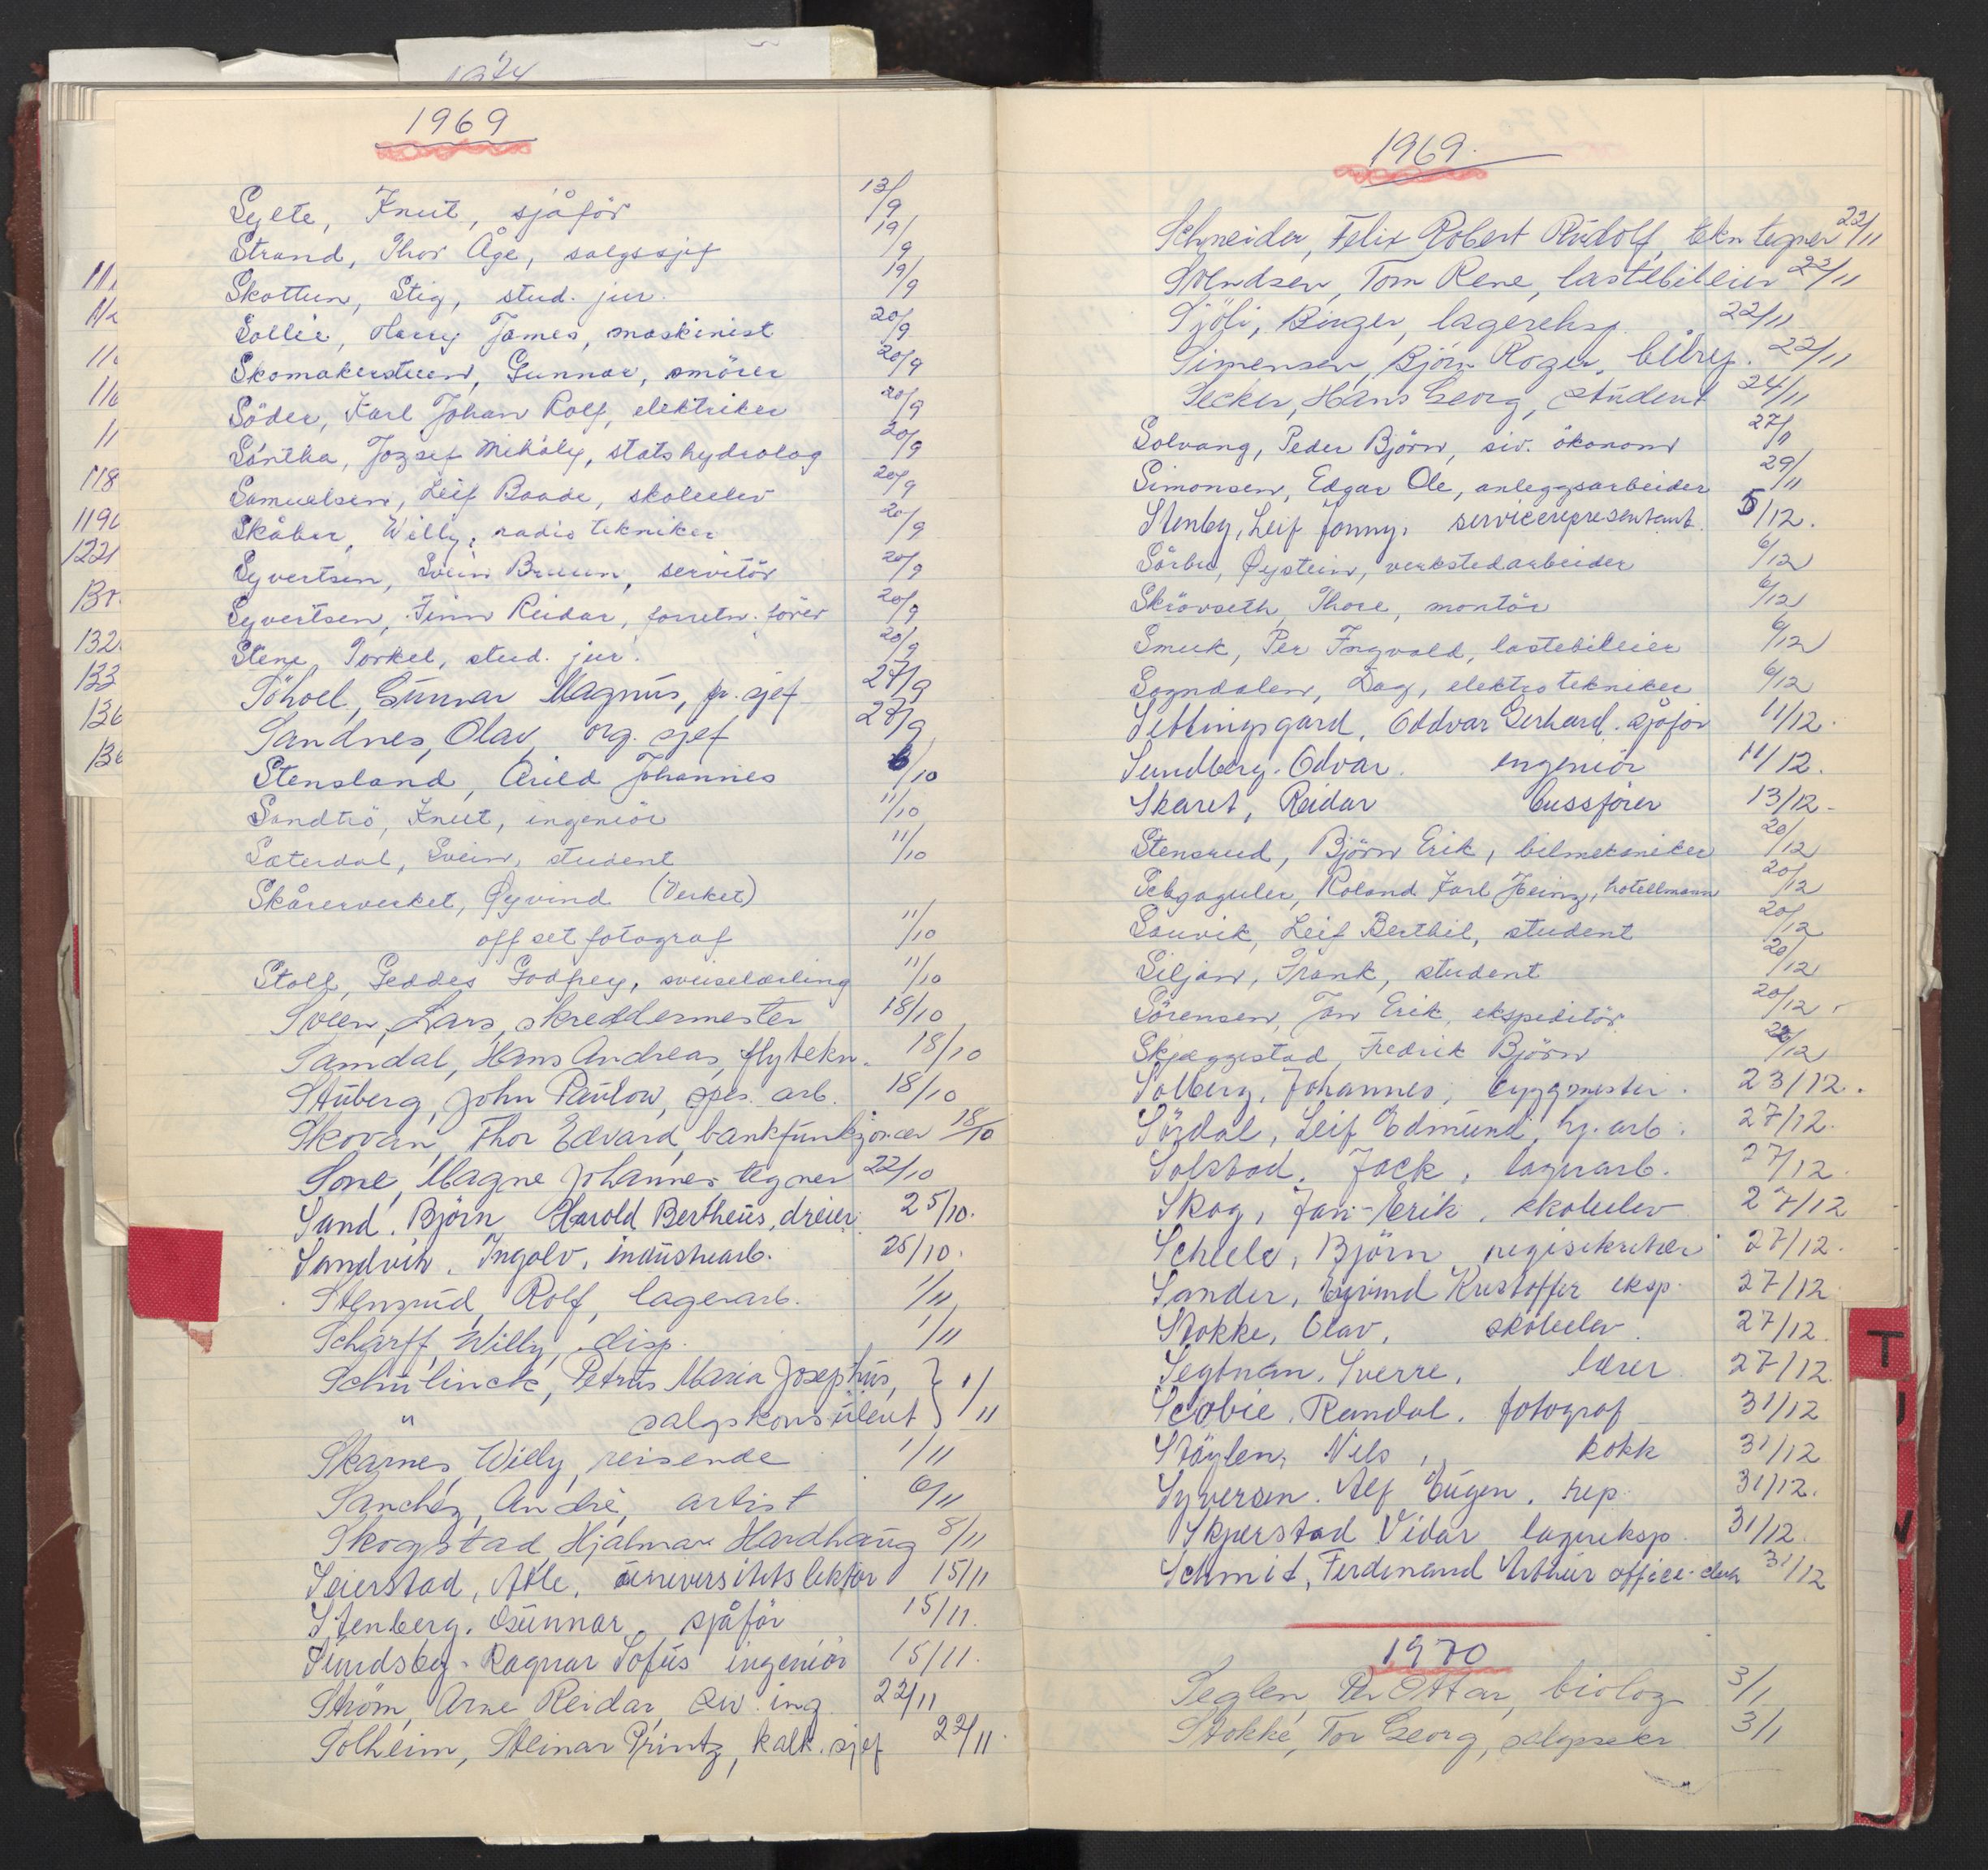 1974
1969
Sylte, Knut, sjåför 13/9
Strand, Thor Åge, salgssjef 19/9
Skottun, Stig, stud. jur. 19/9
Sollie, Harry James, maskinist 20/9
Skomakerstuen, Gunnar, smörer 20/9
Söder, Karl Johan Rolf, elektriker 20/9
Sántha, Jozsef Mihály, statshydrolog 20/9
Samuelsen, Leif Baade, skoleelev 20/9
Skåber, Willy, radio tekniker 20/9
Syvertsen, Svein Bruun, servitör 20/9
Syvertsen, Finn Reidar, forretn. förer 20/9
Stene, Torkel, stud. jur. 20/9
Söhoel, Gunnar Magnus, pr. sjef 27/9
Sandnes, Olav, org. sjef 27/9
Stensland, Arild Johannes 6/10
Sandtrö, Knut, ingeniör 11/10
Sæterdal, Svein, student 11/10
Skårerverket, Øyvind (Verket)
offset fotograf 11/10
Stoll, Geddes Godfrey, sveiselærling 11/10
Sveen, Lars, skreddermester 18/10
Samdal, Hans Andreas, flytekn. 18/10
Stuberg, John Paulow, spes. arb. 18/10
Skovan, Thor Edvard, bankfunksjonær 18/10
Sone, Magne Johannes tegner 22/10
Sand, Björn Harold Bertheus, dreier 25/10.
Sandvik, Ingolv, industriarb. 25/10.
Stensrud, Rolf, lagerarb. 1/11
Scharff, Willy, disp. 1/11
Schulinck, Petrus Maria Josephus, } 1/11
" salgskonsulent
Skarnes, Willy, reisende 1/11
Sanchez, André, artist 6/11
Skogstad Hjalmar Hardhaug 8/11
Seierstad, Atle, universitetslektor 15/11
Stenberg, Gunnar, sjåför 15/11.
Sundsby, Ragnar Sofus ingeniör 15/11.
Ström, Arne Reidar, siv. ing. 22/11
Solheim, Steinar Printz, kalk. sjef 22/11.
118
1221
132
133
136
1969.
Schneider, Felix Robert Rudolf, tekn tegner 22/11
Svendsen, Tom Rene, lastebileier 22/11
Sjöli, Birger, lagereksp. 22/11
Simensen, Björn Roger, bilrep. 22/11
Secker, Hans Georg, student 24/11
Solvang, Peder Björn, siv. ökonom 27/11
Simonsen, Edgar Ole, anleggsarbeider 29/11
Stenby, Leif Jonny, servicerepresentant. 5/12.
Sårbu, Øystein, verkstedarbeider 6/12
Skrövseth, Thore, montör 6/12
Smuk, Per Ingvald, lastebileier 6/12
Sogndalen, Dag, elektrotekniker 6/12
Settingsgard, Oddvar Gerhard. sjåför 11/12.
Sundberg. Odvar. ingeniör 11/12.
Skaret, Reidar bussförer 13/12.
Stensrud, Björn Erik, bilmekaniker 20/12
Roland Karl Heinz, hotellmann 20/12
Sauvik, Leif Berthil, student 20/12
Siljan, Frank, student 20/12
Sörensen, Jan Erik, ekspeditör 20/12
Skjæggestad, Fredrik Björn 22/12
Solberg, Johannes, byggmester. 23/12.
Sördal, Leif Edmund, hj. arb. 27/12.
Solstad, Jack, lagerarb. 27/12.
Skog, Jan-Erik, skoleelev 27/12
Scheele, Björn regisekretær 27/12.
Sander, Eyvind Kristoffer eksp. 27/12
Stokke, Olav, skoleelev 27/12.
Segtnan, Sverre, lærer 27/12.
Scobie, Randal, fotograf 31/12
Stöylen, Nils, kokk 31/12
Syversen. Alf Eugen. rep. 31/12.
Skjerstad Vidar lagereksp. 31/12.
Schmid, Ferdinand Arthur office-clerk 31/12
1970
Seglen, Per Ottar, biolog 3/1
Stokke, Tor Georg, salgssekr 3/1
T